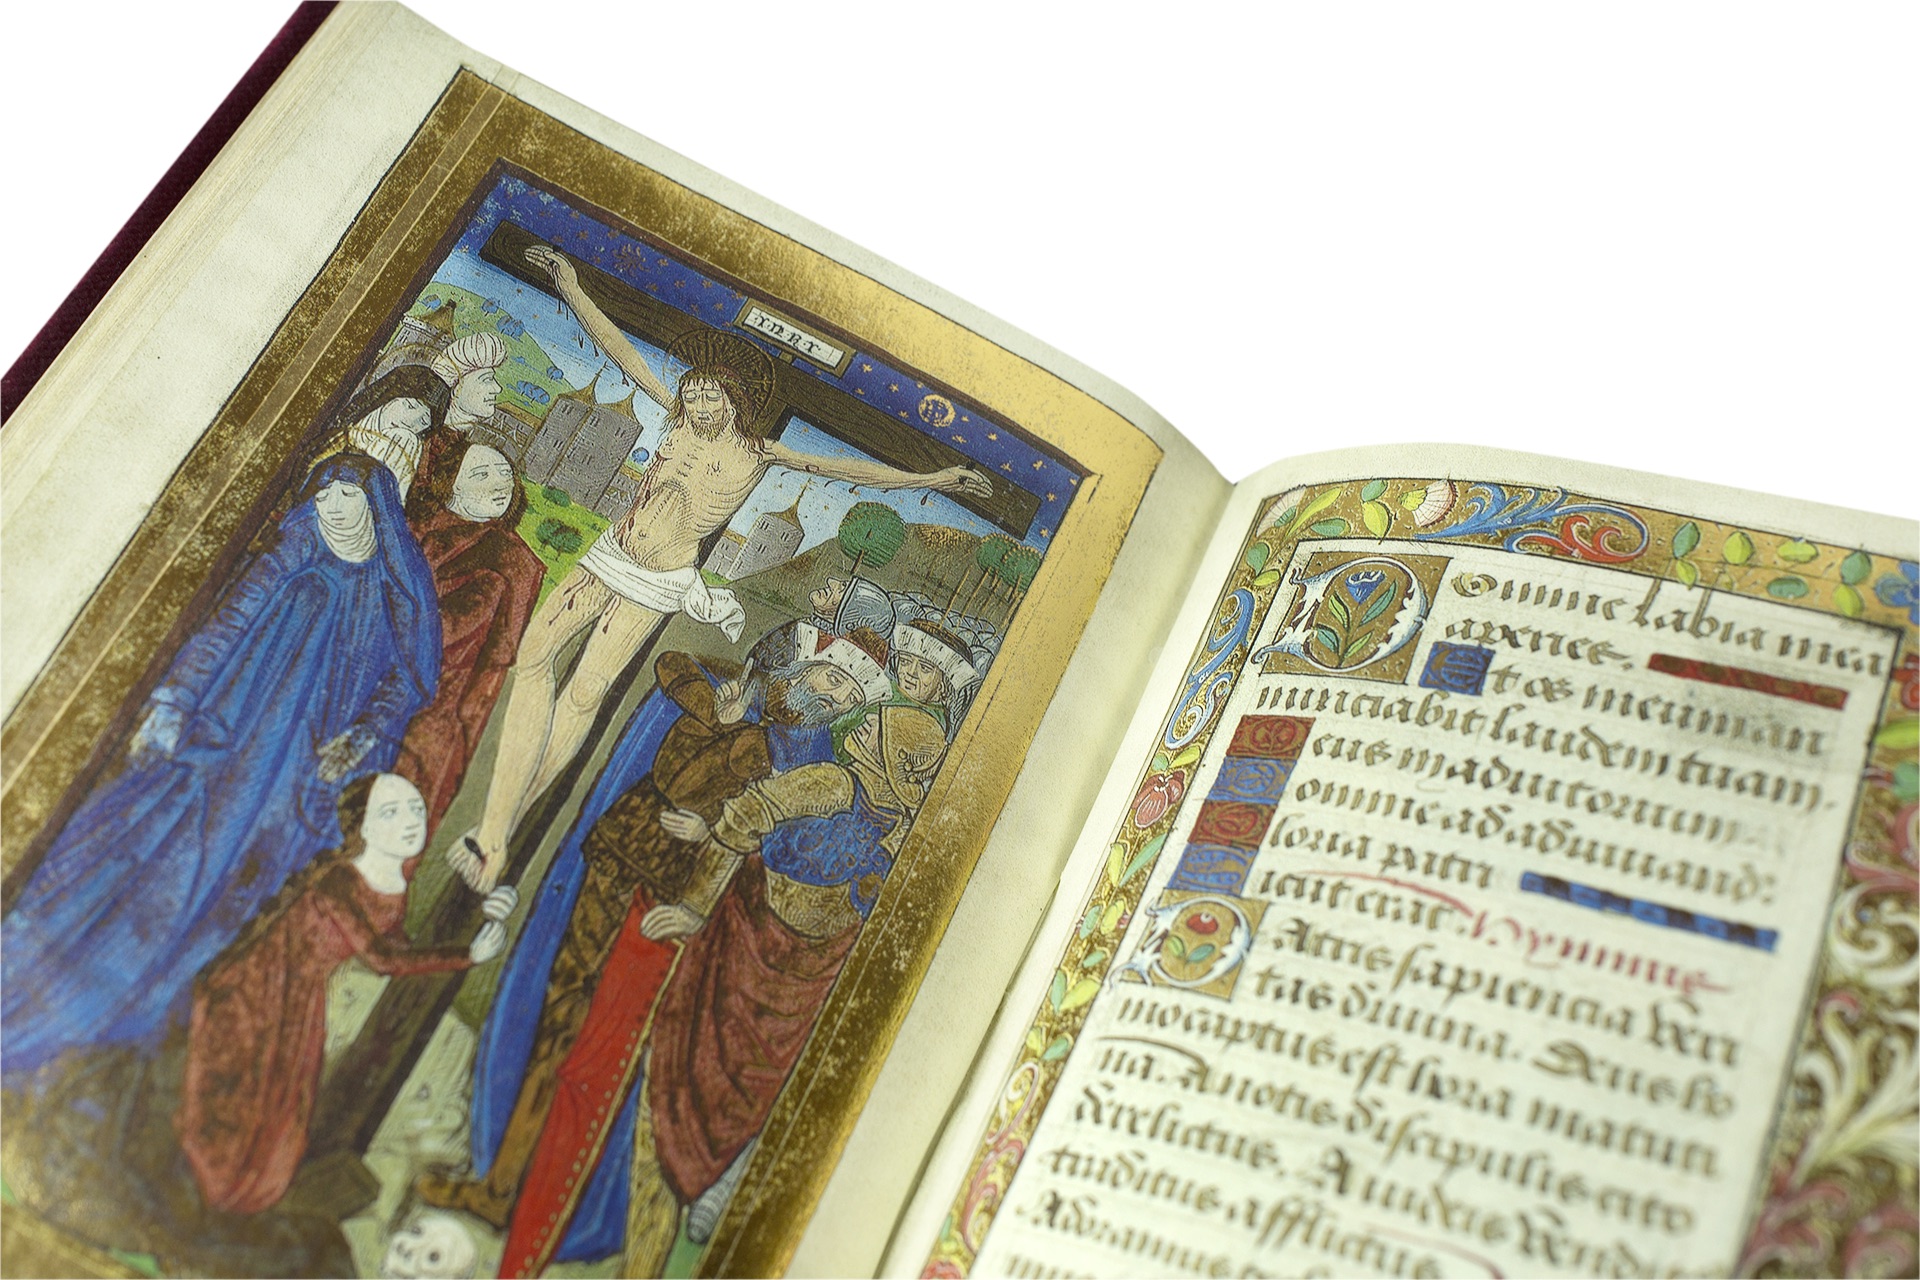 INRI
Domine labia mea
aperies.
Et os meum an
nunciabit laudem tuam.
Deus in adiutorium
Domine ad adiuuand
Gloria patri
Sicut erat. Hymnus
Patris sapiencia veri
tas diuina. Deus ho
mo captus est hora matuti
na. A notis discipulis cito
derelictus. A iudeis vendi
traditus afflictus
Adoramus te